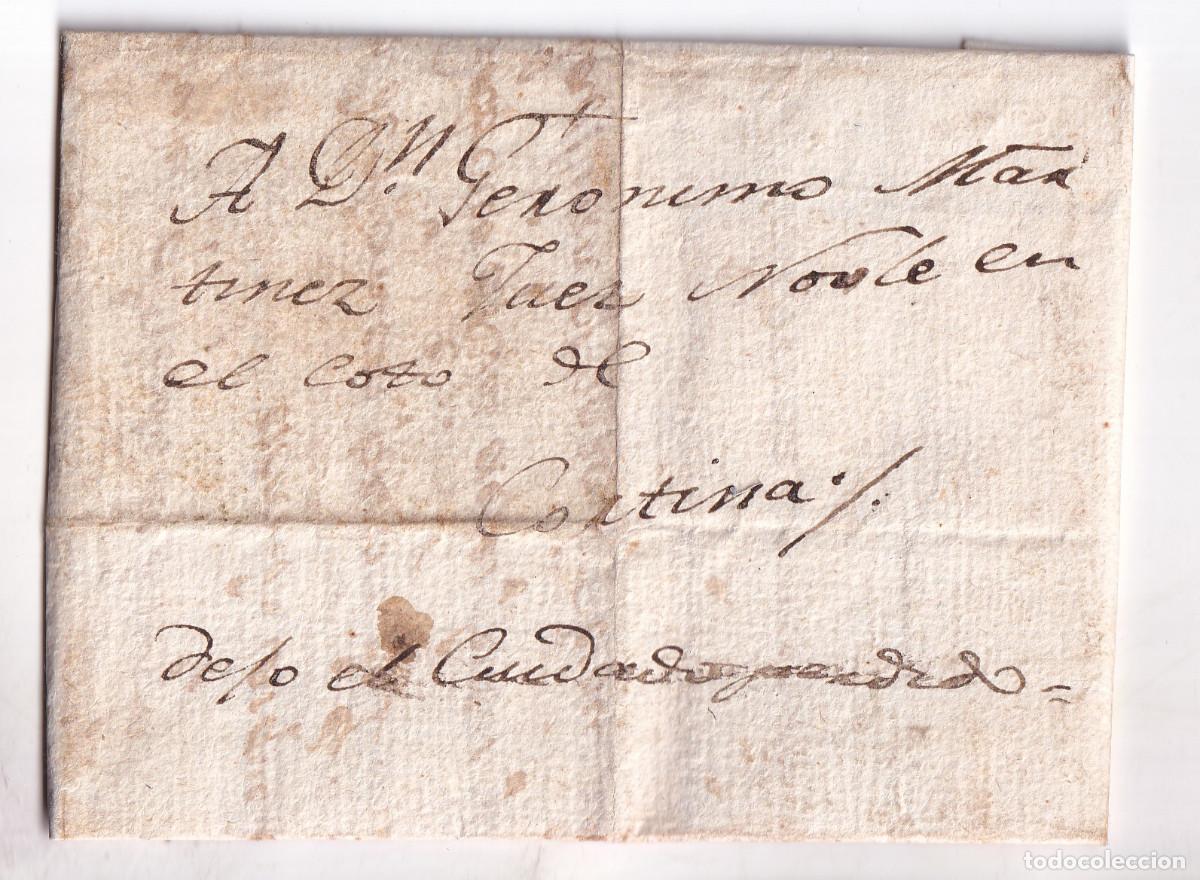 A Dn. Geronimo Mar
tinez Juez Novle en
el Coto de
Cortina·/.
deso el Cuidado perdido =
todocoleccion